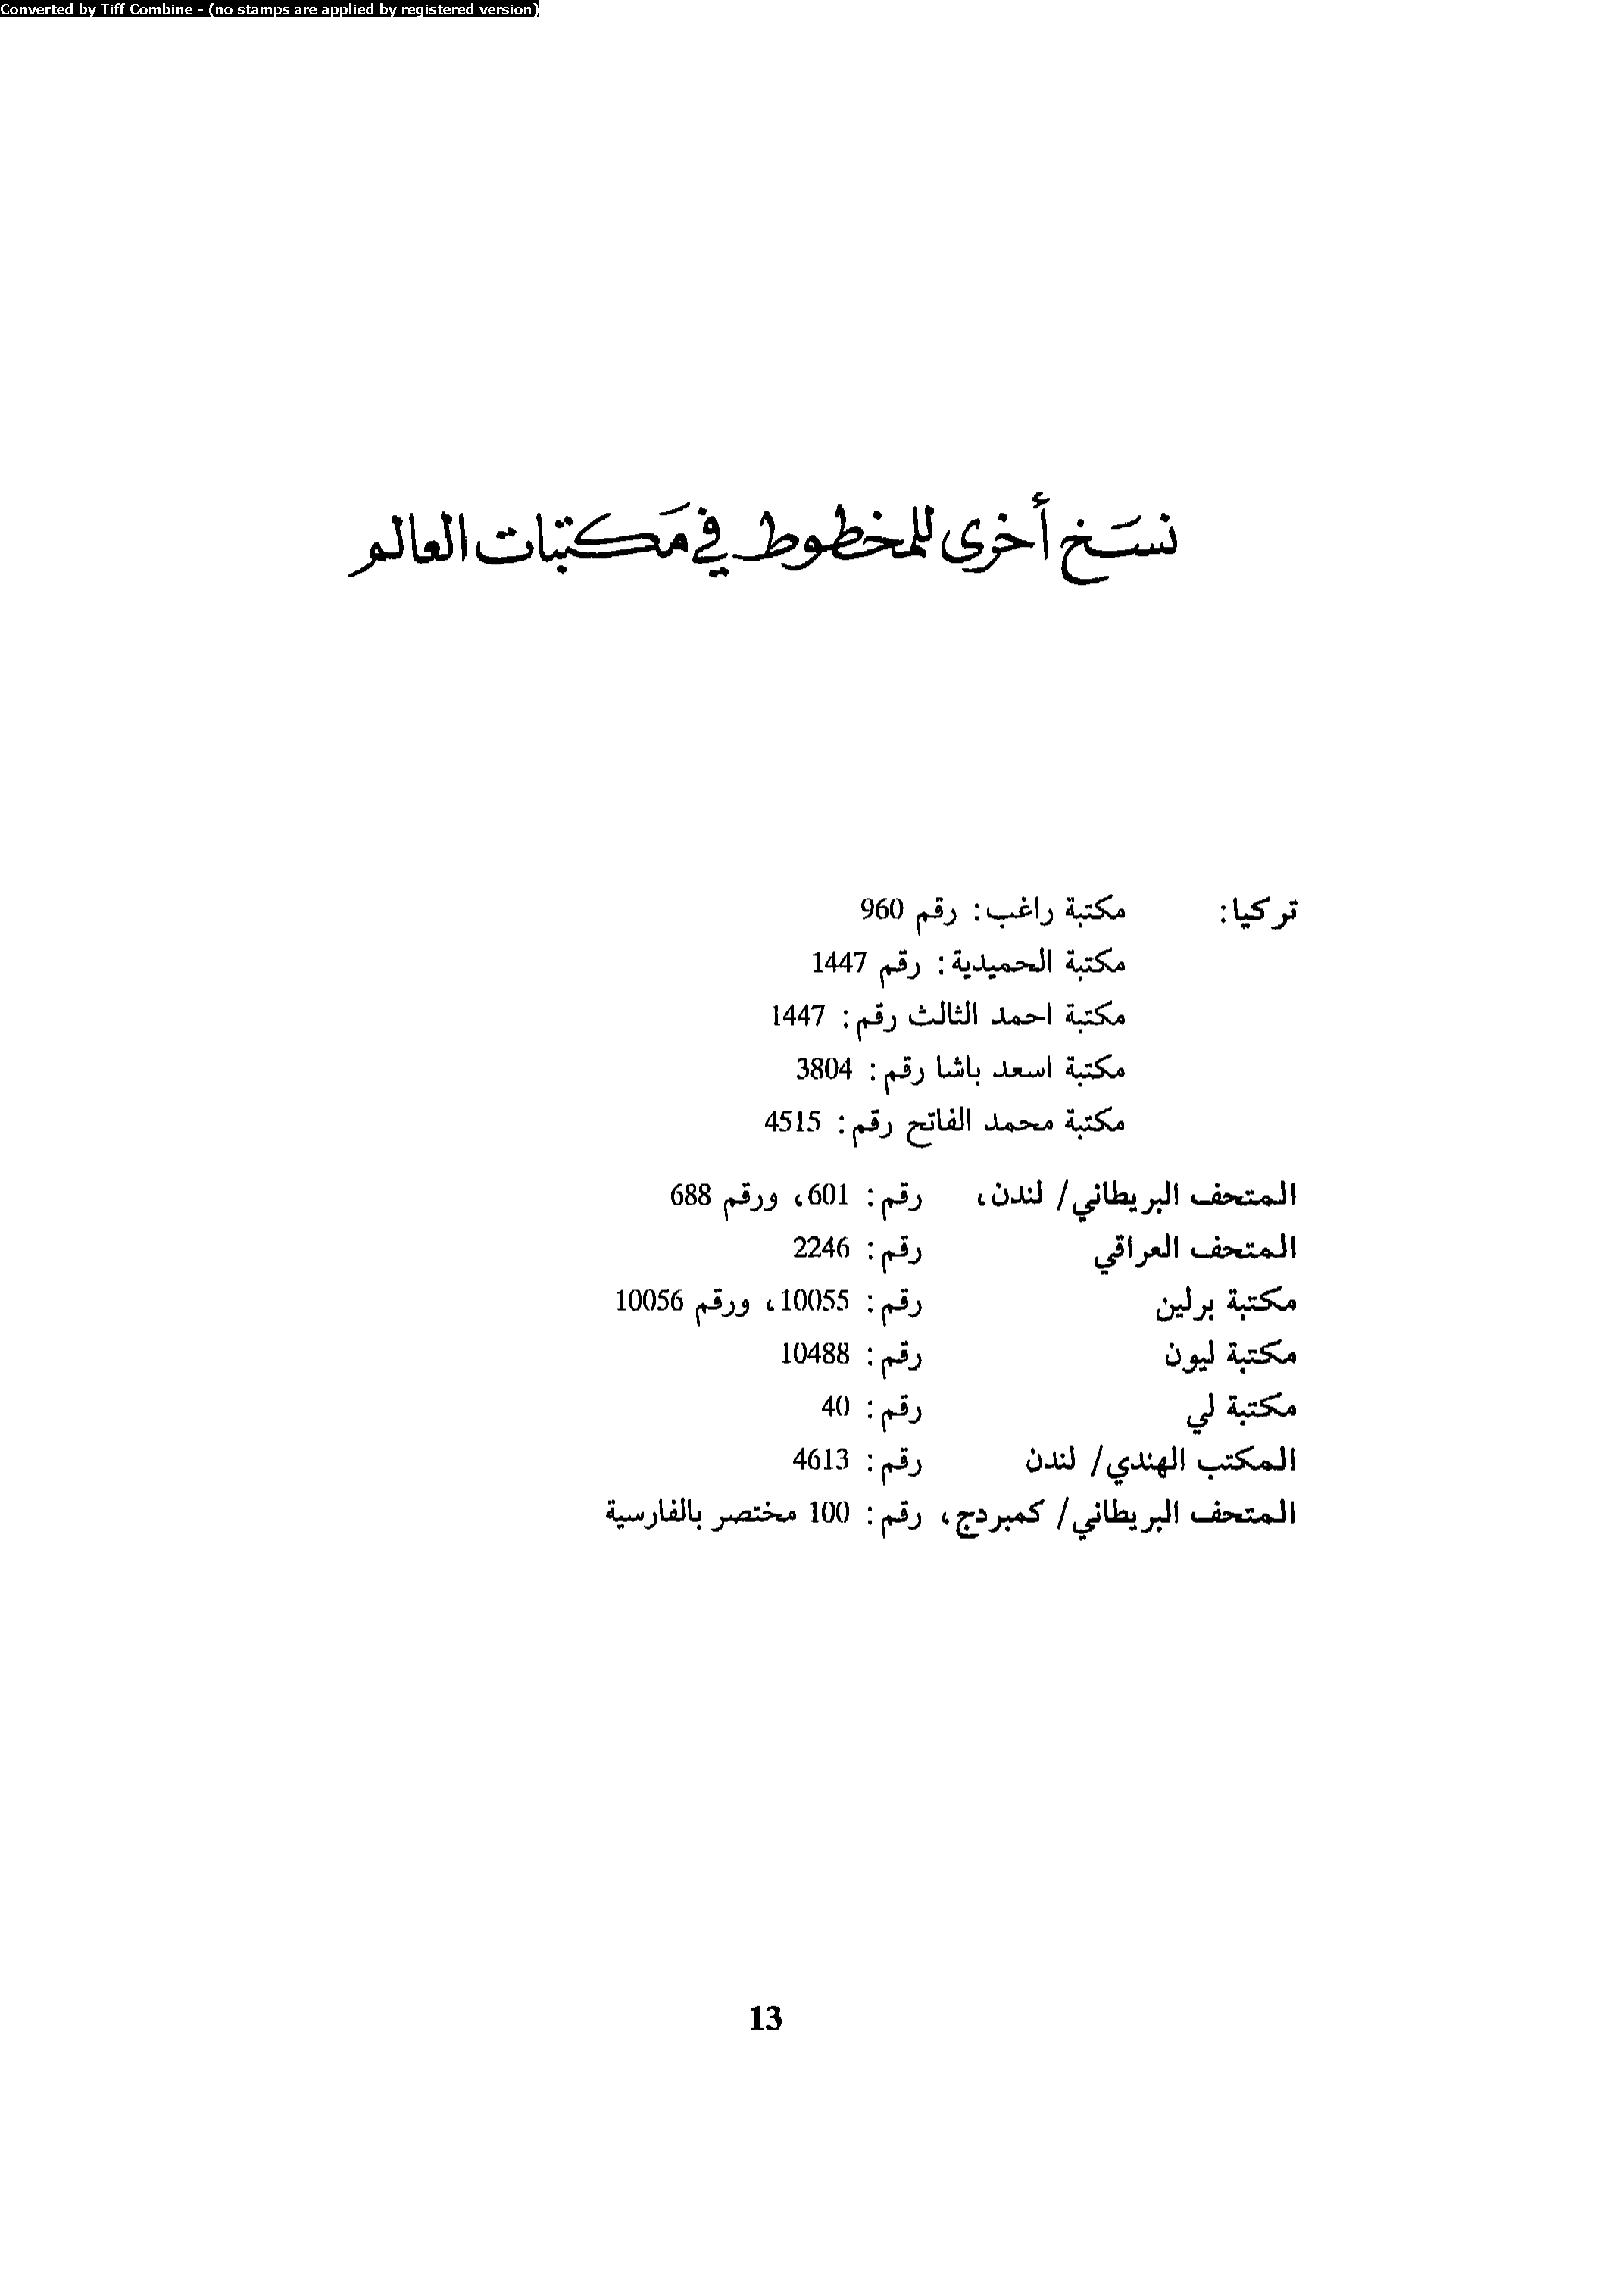 Converted by Tiff Combine - (no stamps are applied by registered version)
نسَخ أخرى للمخطوط في مَكتبات العالم
تركيا: مكتبة راغب: رقم 960
مكتبة الحميدية: رقم 1447
مكتبة احمد الثالث رقم: 1447
مكتبة اسعد باشا رقم: 3804
مكتبة محمد الفاتح رقم: 4515
المتحف البريطاني/ لندن، رقم: 601، ورقم 688
المتحف العراقي رقم: 2246
مكتبة برلين رقم: 10055، ورقم 10056
مكتبة ليون رقم: 10488
مكتبة لي رقم: 40
المكتب الهندي/ لندن رقم: 4613
المتحف البريطاني/ كمبردج، رقم: 100 مختصر بالفارسية
13